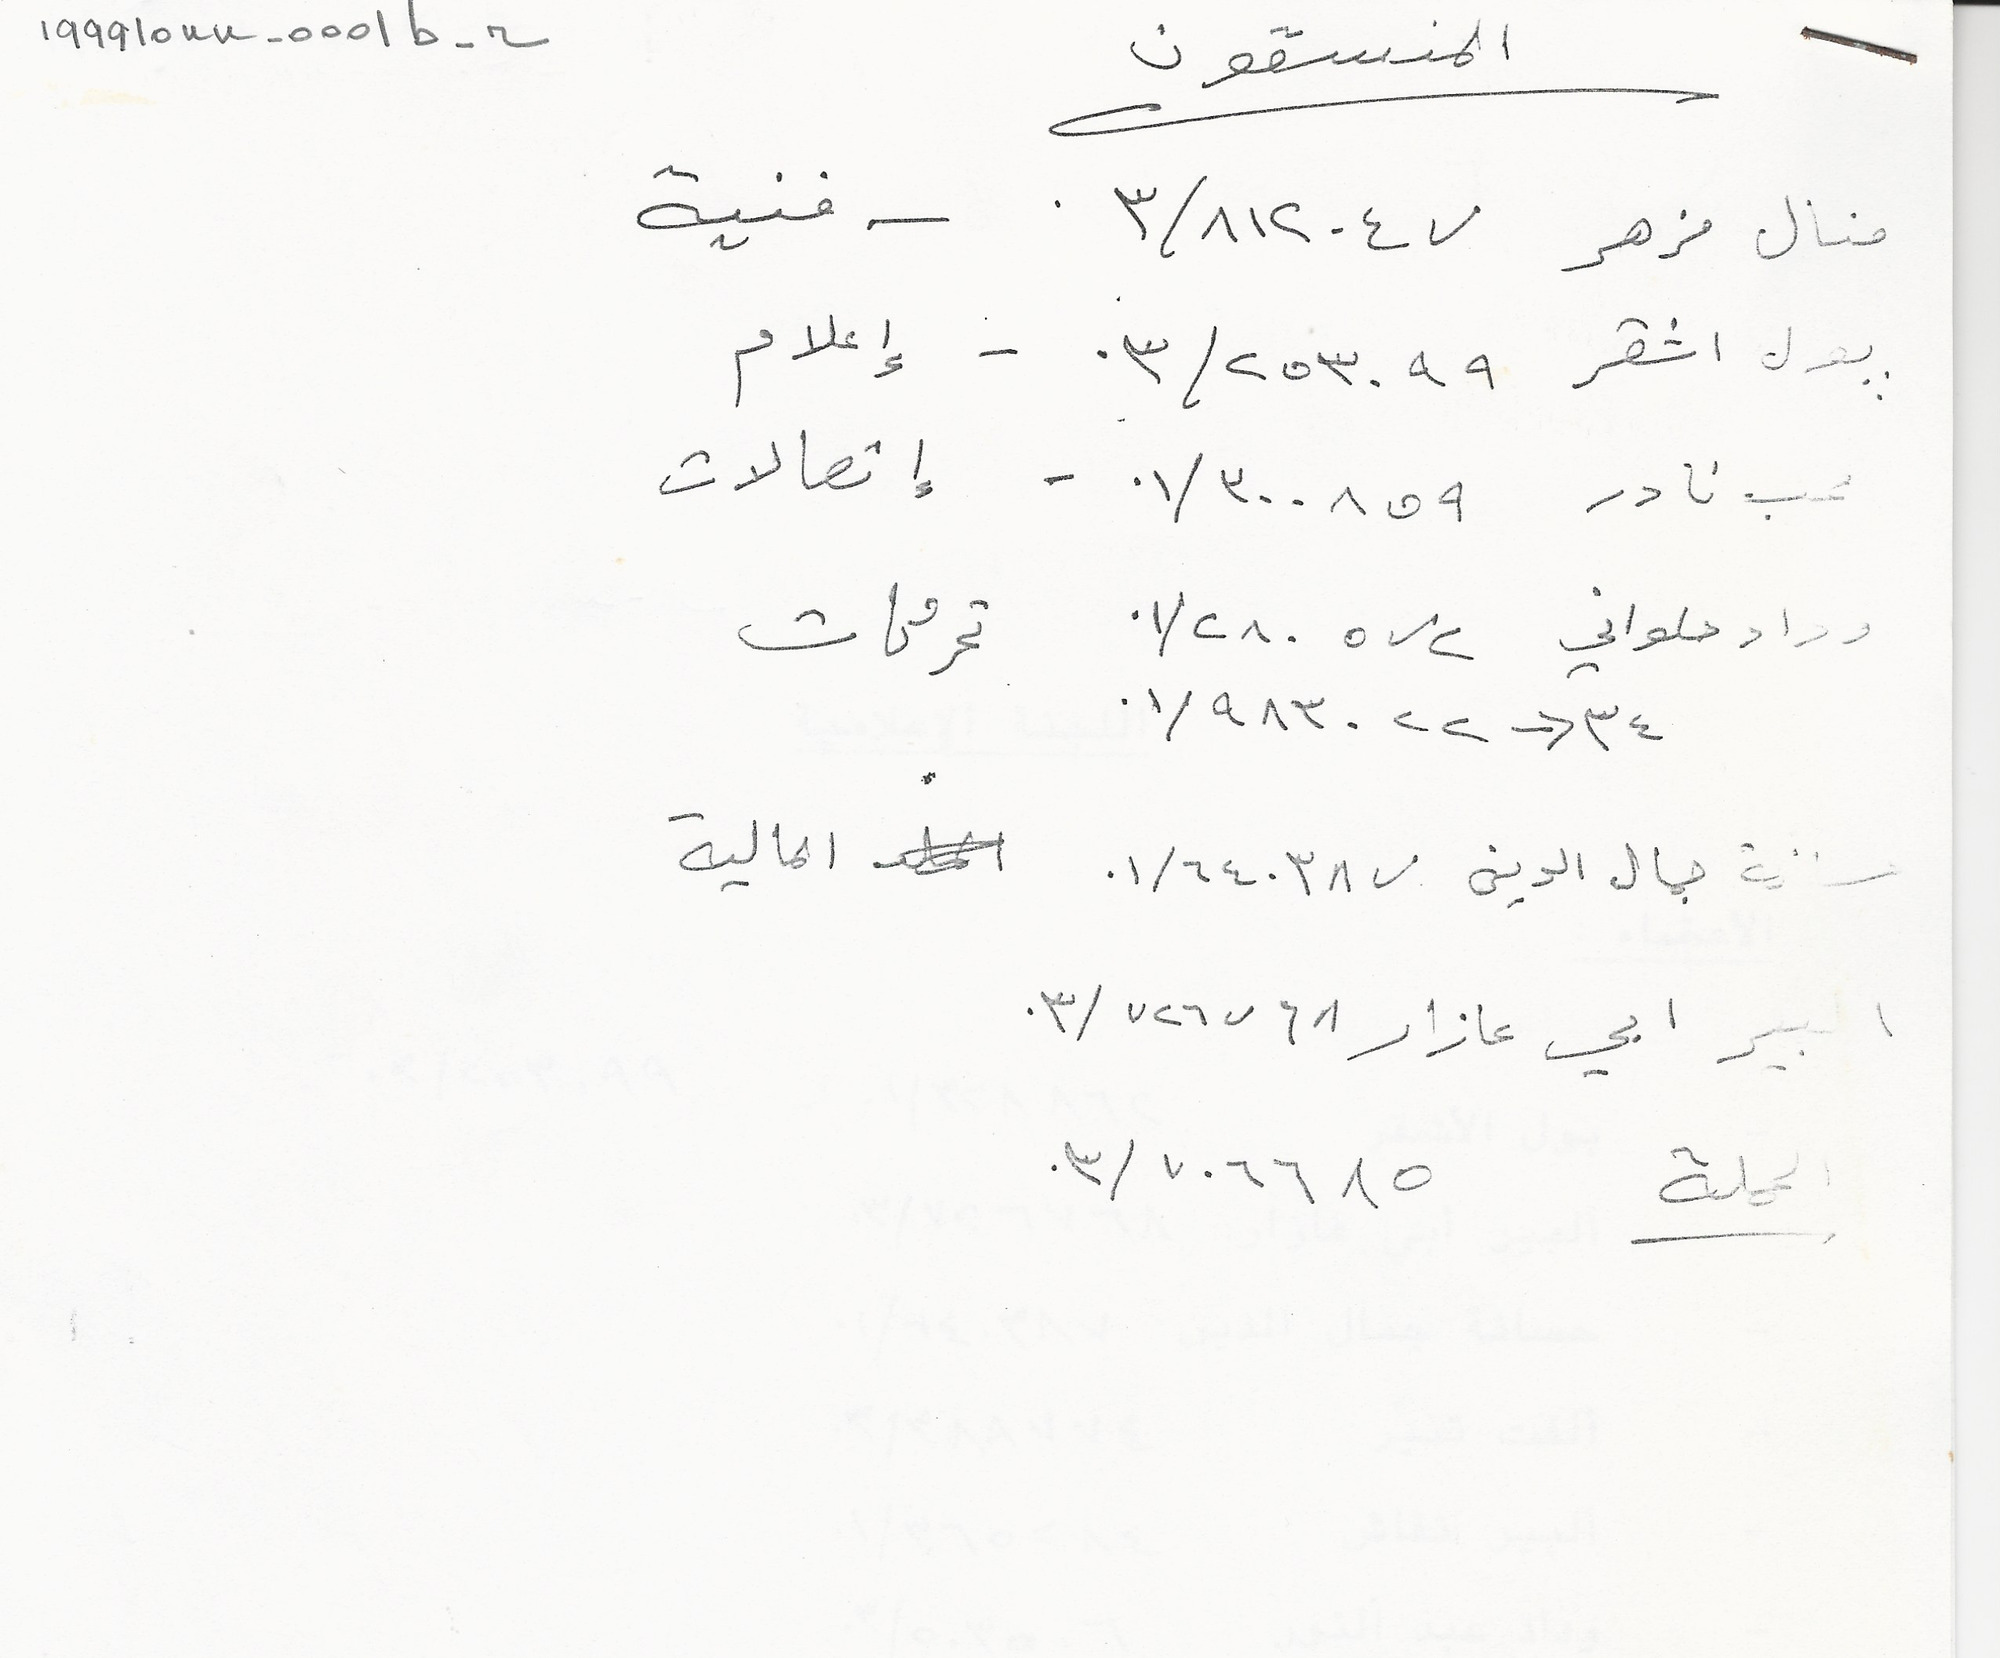 19991022-0001b-2
المنسقون
منال مزهر ٠٣/٨١٢٠٤٧ - فنية
پول اشقر ٠٣/٢٥٣٠٩٩ - إعلام
نادر ٠١/٣٠٠٨٥٩ - إتصالات
وداد حلواني ٠١/٢٨٠٥٧٢ تحركات
٠١/٩٨٣٠٢٢ → ٣٤
جمال الدين ٠١/٦٤٠٣٨٧ المالية
ابي عازار ٠٣/٧٢٦٧٦٨
الحملة ٠٣/٧٠٦٦٨٥